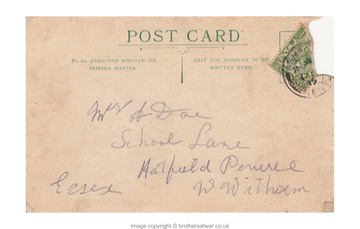 POST CARD
TO BE USED FOR WRITTEN OR
PRINTED MATTER
ONLY THE ADDRESS TO BE
WRITTEN HERE
Mrs A Doe
School Lane
Hatfield Peverel
Essex
Nr Witham
image copyright © brothersatwar.co.uk